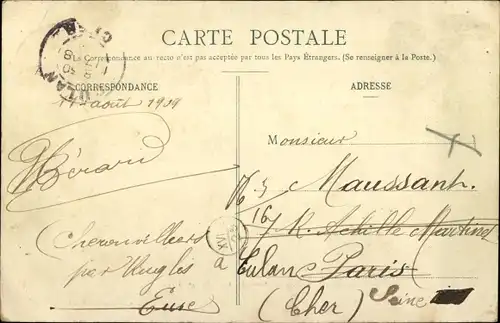 CARTE POSTALE
La Correspondance au recto n'est pas acceptée par tous les Pays Étrangers. (Se renseigner à la Poste.)
CORRESPONDANCE
ADRESSE
août 1909
Monsieur
Hérard
Maussant
16
R. Achille Martinet
XVI
Cherenvilliers
par Rugles
Eure
à Culan Paris
(Cher) Seine